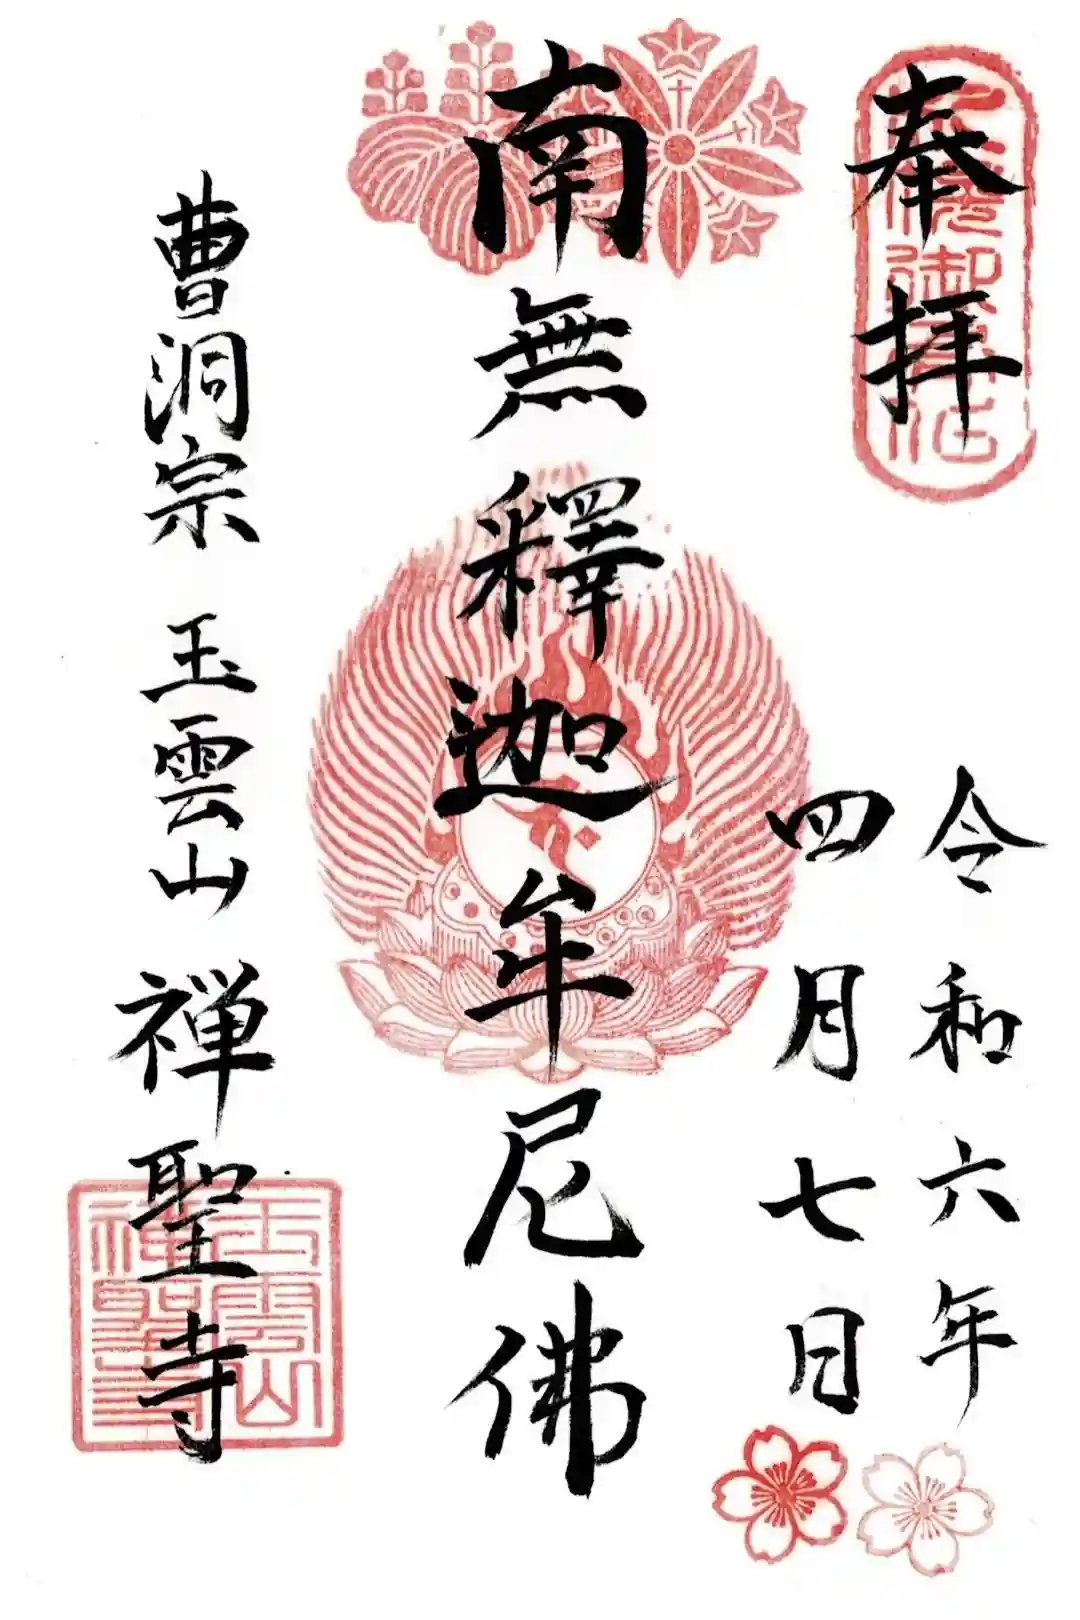 奉拝
令和六年
四月七日
南無釋迦牟尼佛
曹洞宗 玉雲山 禅聖寺
玉雲山
禅聖寺